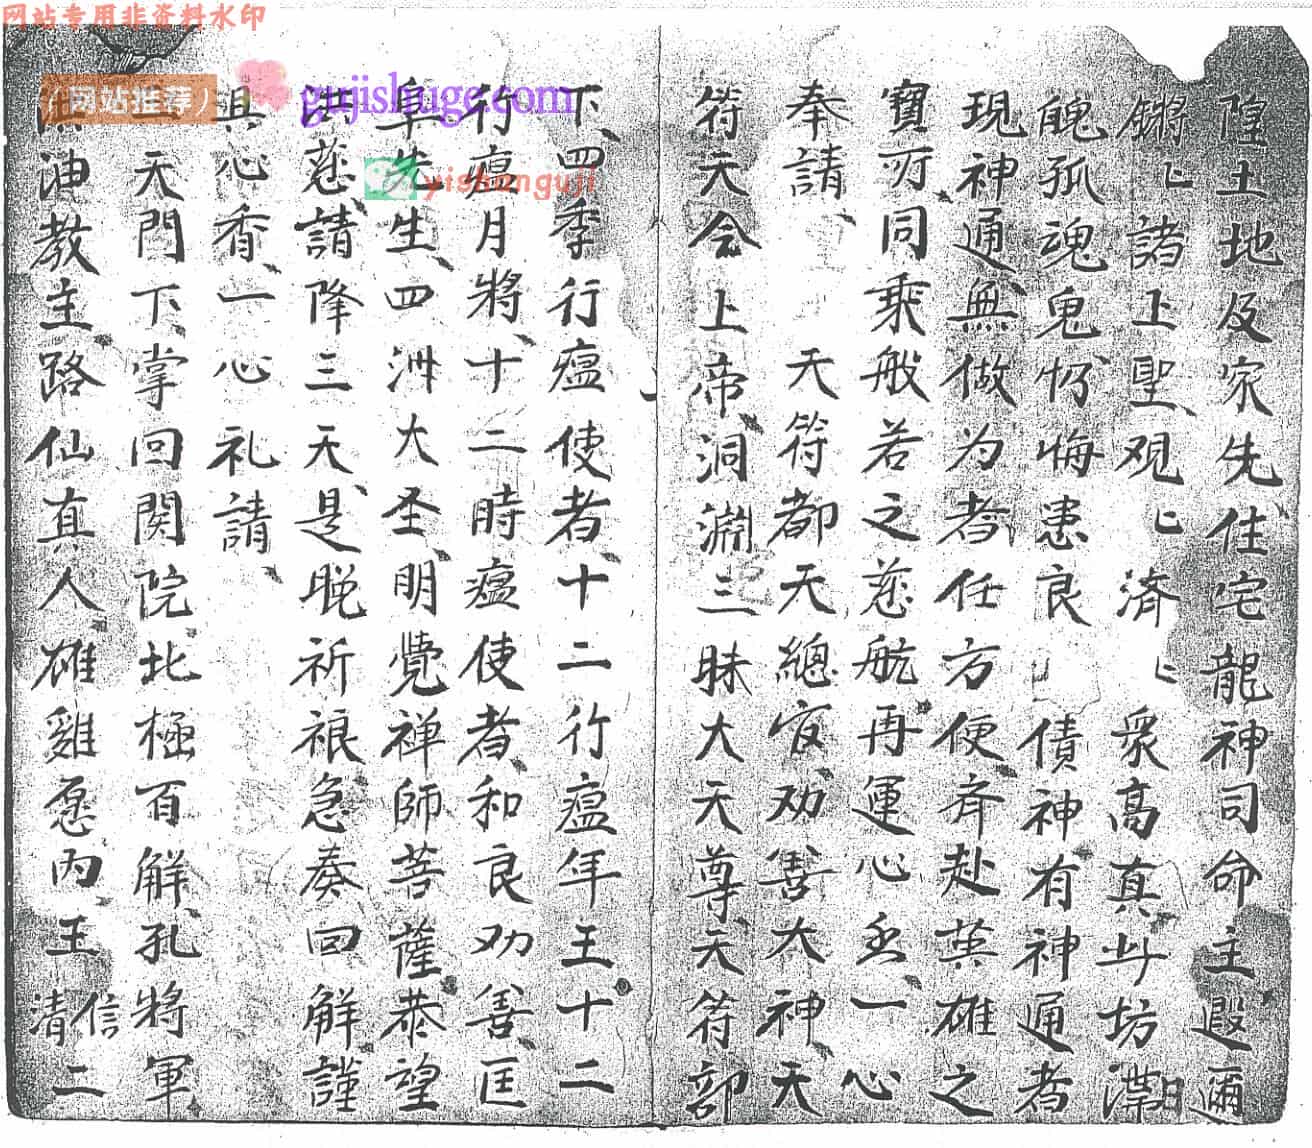 网站专用非资料水印
(网站推荐)
gujishuge.com
yishanguji
隍土地及家先住宅龍神司命主遐邇
鏘〻諸上聖观〻濟〻衆高真斗坊漂
魄孤魂鬼忻悔患良債神有神通者
現神通無做为者任方便斉赴英雄之
寶可同乘般若之慈航再運心丞一心
奉請天符都天總官劝善大神天
符天令上帝洞淵三昧大天尊天符部
下四季行瘟使者十二行瘟年王十二
行瘟月將十二時瘟使者和良劝善匡
阜先生四洲大圣明覺禅師菩薩恭望
洪慈請降三天是晚祈禳急奏回解謹
具心香一心礼請
天門下掌回関院北極百解孔將軍
油教主路仙真人雄雞急內王信清二